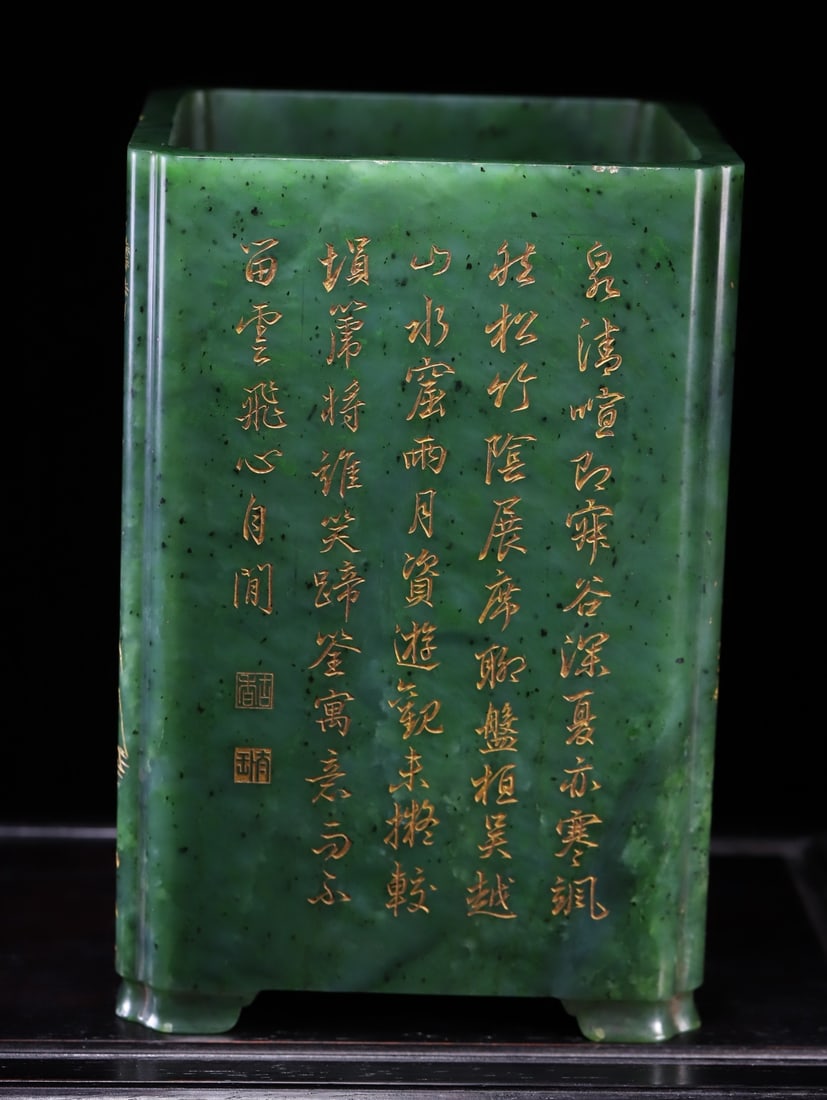 泉清喧即寂谷深夏亦寒颯
然松竹陰展席聊盤桓吳越
山水窟兩月資遊觀未擬較
塤箎將誰笑蹄筌寓意而不
留雲飛心自閒
古香